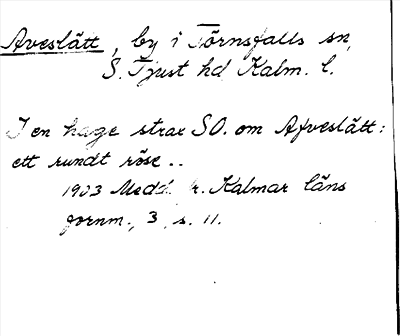 Aveslätt, by i Törnsfalls sn,
S. Tjust hd Kalm. l.
I en hage strax SO. om Afveslätt:
ett rundt röse..
1903 Medd. fr. Kalmar läns
fornm., 3, s. 11.